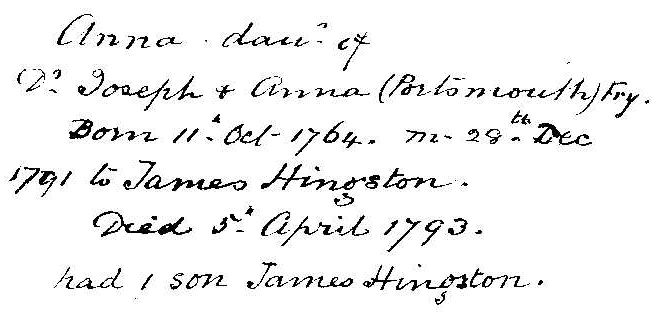 Anna daur. of
Dr. Joseph & Anna (Portsmouth) Fry.
Born 11th Oct 1764. m. 28th Dec
1791 to James Hingston.
Died 5th April 1793.
had 1 son James Hingston.